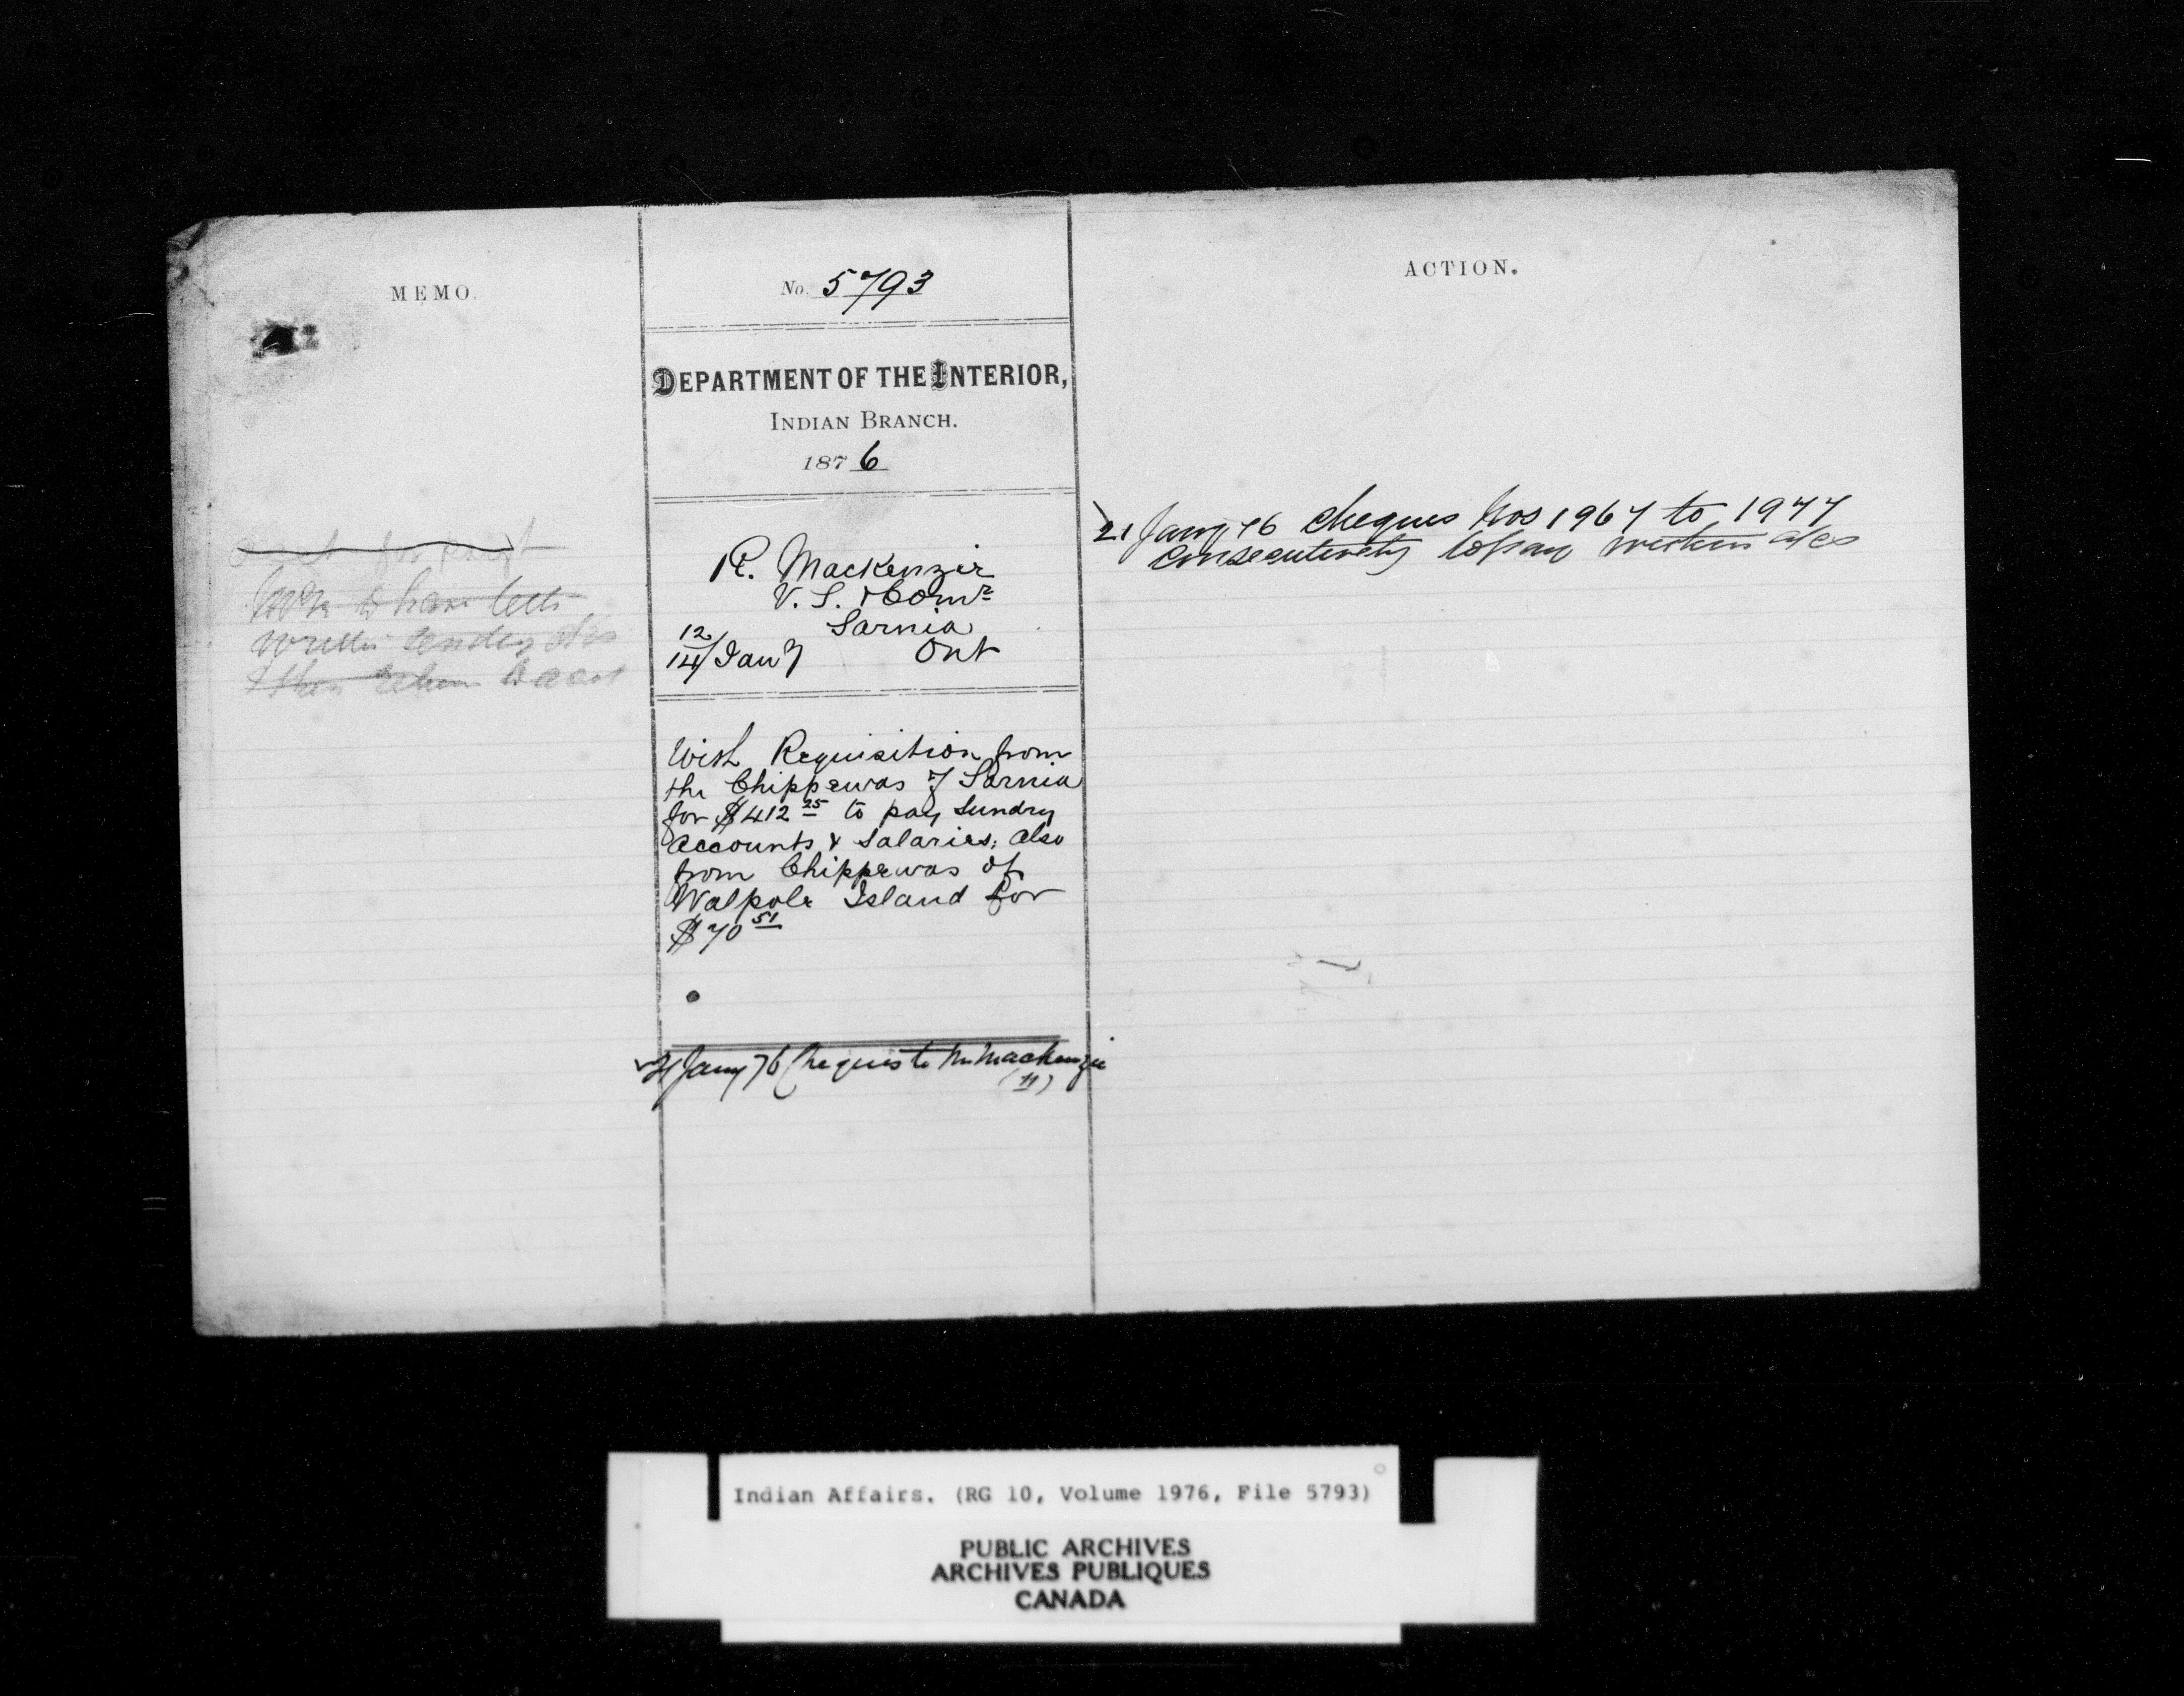 MEMO.
written
No. 5793
DEPARTMENT OF THE INTERIOR,
INDIAN BRANCH.
1876
R. Mackenzie
V. S. & Comr
Sarnia
12/14 Jany Ont
With Requisition from
the Chippewas of Sarnia
for $412 25 to pay Sundry
accounts & Salaries; also
from Chippewas of
Walpole Island for
$70 51
21 Jany 76 Cheques to Mr Mackenzie
(11)
ACTION.
21 Jany 76 Cheques Nos 1967 to 1977
Consecutively to pay within a/cs
Indian Affairs. (RG 10, Volume 1976, File 5793)
PUBLIC ARCHIVES
ARCHIVES PUBLIQUES
CANADA